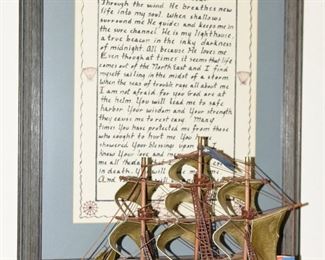 Through the wind He breathes new
life into my soul. When shallows
surround me He guides and keeps me in
the sure channel. He is my lighthouse,
a true beacon in the inky darkness
of midnight. All because He loves me.
Even though at times it seems that life
comes out of the NorthEast and I find
myself sailing in the midst of a storm
When the seas of trouble rage all about me
I am not afraid for you God are at
the helm. You will lead me to safe
harbor. Your wisdom and Your strength
they causes me to rest easy. Many
times You have protected me from those
who sought to hurt me. You
showered Your blessings upon
know Your love and
me all the
in death. You will
And